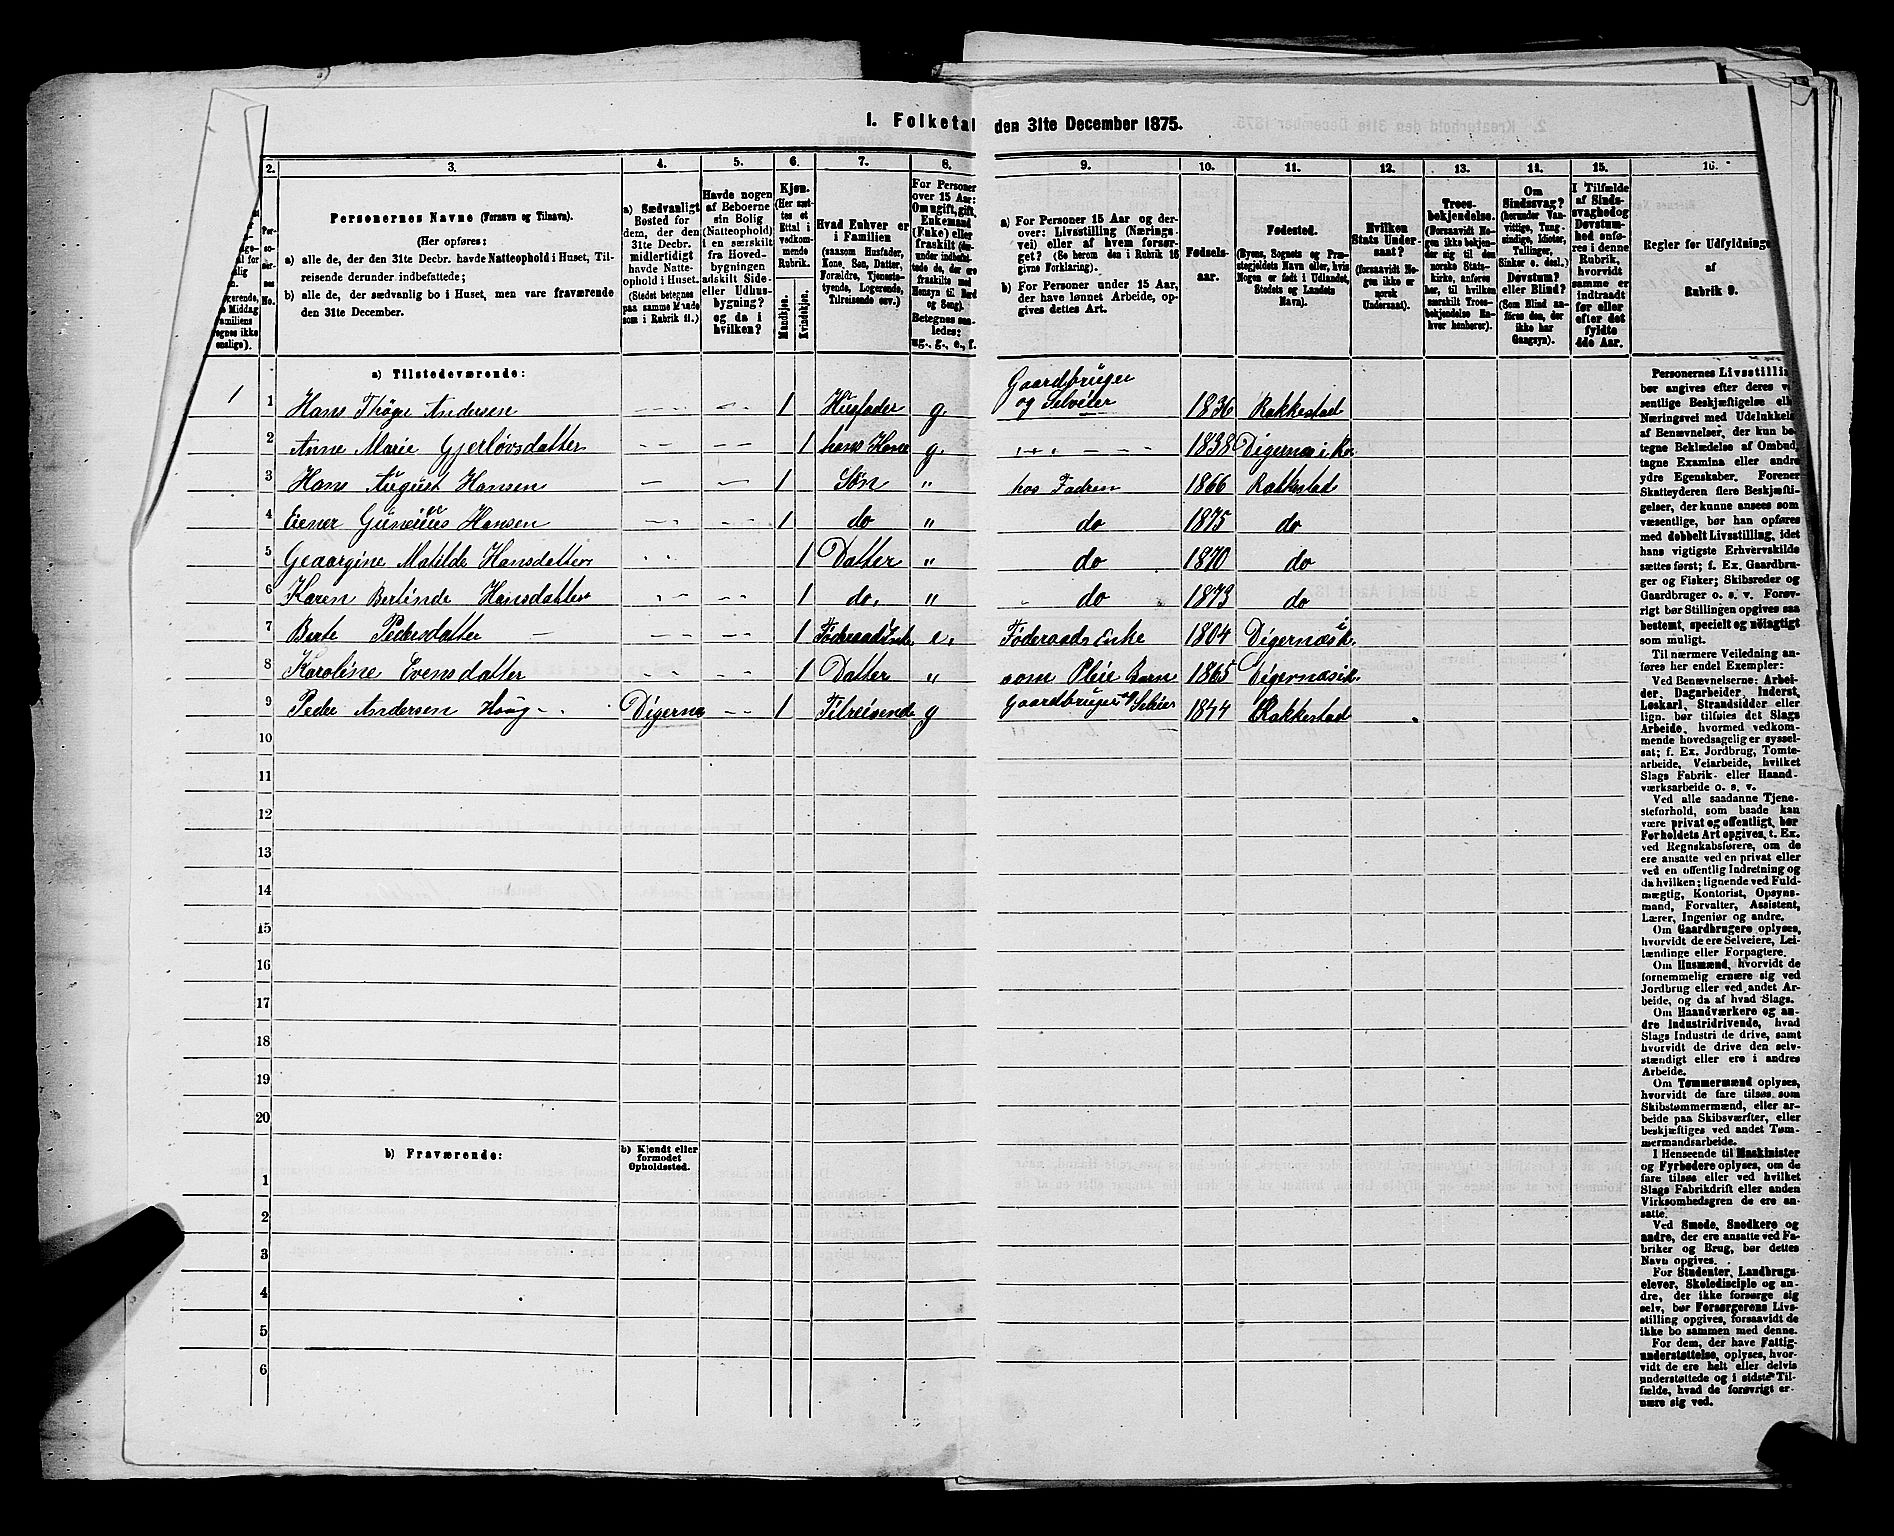 1. Folketal den 31te December 1875.
2. 3. 4. 5. 6. 7. 8. 9. 10. 11. 12. 13. 14. 15. 16.
Personernes Navne (Fornavn og Tilnavn).
(Her opføres:
a) alle de, der den 31te Decbr. havde Natteophold i Huset, Til-
reisende derunder indbefattede;
b) alle de, der sædvanlig bo i Huset, men vare fraværende
den 31te December.
a) Sædvanligt
Bosted for
dem, der den
31te Decbr.
midlertidigt
havde Natte-
ophold i Huset.
(Stedet betegnes
paa samme Maade
som i Rubrik 11.)
Havde nogen
af Beboerne
sin Bolig
(Natteophold)
i en særskilt
fra Hoved-
bygningen
adskilt Side-
eller Udhus-
bygning?
og da i
hvilken?
Kjøn.
(Her sæt-
tes et
Ettal i
vedkom-
mende
Rubrik.
Mandkjøn.
Kvindekjøn.
Hvad Enhver er
i Familien
(saasom Husfader,
Kone, Søn, Datter,
Forældre, Tjeneste-
tyende, Logerende,
Tilreisende osv.)
For Personer
over 15 Aar:
Om ugift, gift,
Enkemand
(Enke) eller
fraskilt
Betegnes saa-
ledes:
ug., g., e., f.
a) For Personer 15 Aar og der-
over: Livsstilling (Nærings-
vei) eller af hvem forsør-
get? (Se herom den i Rubrik 16
givne Forklaring).
b) For Personer under 15 Aar,
der have lønnet Arbeide, op-
gives dettes Art.
Fødsels-
aar.
Fødested.
(Byens, Sognets og Præ-
stegjeldets Navn eller, hvis
Nogen er født i Udlandet,
Stedets og Landets
Navn).
Hvilken
Stats Under-
saat?
(forsaavidt No-
gen ikke er
norsk
Undersaat).
Troes-
bekjendelse.
(Forsaavidt No-
gen ikke bekjen-
der sig til den
norske Stats-
kirke, anføres
her, til hvilken
særskilt Troes-
bekjendelse En-
hver henhører).
Om
Sindssvag?
(herunder Van-
vittige, Tung-
sindige, Idioter,
Tullinger,
Sinker o. desl.)
Døvstum?
eller Blind?
(Som Blind an-
føres den, der
ikke har
Gangsyn).
I Tilfælde
af Sinds-
svaghed og
Døvstum-
hed anfø-
res i denne
Rubrik,
hvorvidt
samme er
indtraadt
før eller
efter det
fyldte
4de Aar.
Regler for Udfyldninge
af
Rubrik 9.
a) Tilstedeværende:
1 1 Hans Thøge Andersen 1 Husfader g. Gaardbruger og Selveier 1836 Rakkestad
2 Anne Marie Gjerløvsdatter 1 hans Kone g. 1838 Digernæs i R.
3 Hans August Hansen 1 Søn " hos Fadren 1866 Rakkestad
4 Hansen 1 do " do 1875 do
5 Geaargine Matilde Hansdatter 1 Datter " do 1870 do
6 Karen Berlinde Hansdatter 1 do. " do 1873 do
7 Berte Pedersdatter 1 Føderaads Enke e. Føderaads Enke 1804 Digernæs i R.
8 Karoline Evensdatter 1 Datter " som Pleie Barn 1865 Digernæs i R.
9 Peder Andersen Houg Digernæ 1 Tilreisende g Gaardbruger og Selveier 1844 Rakkestad
10
11
12
13
14
15
16
17
18
19
20
b) Fraværende:
b) Kjendt eller
formodet
Opholdssted.
1
2
3
4
5
6
Personernes Livsstillin
bør angives efter deres v
sentlige Beskjæftigelse ell
Næringsvei med Udelukkels
af Benævnelser, der kun be
tegne Beklædelse af Ombud,
tagne Examina eller andre
ydre Egenskaber. Forener
Skatteyderen flere Beskjæfti-
gelser, der kunne ansees som
væsentlige, bør han opføres
med dobbelt Livsstilling, idet
hans vigtigste Erhvervskilde
sættes først; f. Ex. Gaardbru-
ger og Fisker; Skibsreder og
Gaardbruger o. s. v. Forøv-
rigt bør Stillingen opgives saa
bestemt, specielt og nøiagtigt
som muligt.
Til nærmere Veiledning an-
føres her endel Exempler:
Ved Benævnelserne: Arbei-
der, Dagarbeider, Inderst,
Løskarl, Strandsidder eller
lign. bør tilføies det Slags
Arbeide, hvormed vedkom-
mende hovedsagelig er syssel-
sat; f. Ex. Jordbrug, Tomte-
arbeide, Veiarbeide, hvilket
Slags Fabrik- eller Haand-
værksarbeide o. s. v.
Ved alle saadanne Tjene-
steforhold, som baade kan
være privat og offentligt, bør
Forholdets Art opgives, t. Ex.
ved Regnskabsførere, om de
ere ansatte ved en privat eller
ved en offentlig Indretning og
da hvilken; lignende ved Fuld-
mægtig, Kontorist, Opsyns-
mand, Forvalter, Assistent,
Lærer, Ingeniør og andre.
Om Gaardbrugere oplyses,
hvorvidt de ere Selveiere, Lei-
lændinge eller Forpagtere.
Om Husmænd, hvorvidt de
fornemmelig ernære sig ved
Jordbrug eller ved andet Ar-
beide, og da af hvad Slags.
Om Haandværkere og an-
dre Industridrivende, hvad
Slags Industri de drive, samt
hvorvidt de drive den selv-
stændigt eller ere i andres
Arbeide.
Om Tømmermænd oplyses,
hvorvidt de fare tilsøs som
Skibstømmermænd, eller ar-
beide paa Skibsværfter, eller
beskjæftiges ved andet Tøm-
mermandsarbeide.
I Henseende til Maskinister
og Fyrbødere oplyses, om de
fare tilsøs eller ved hvilket
Slags Fabrikdrift eller anden
Virksomhedsgren de ere an-
satte.
Ved Smede, Snedkere og
andre, der ere ansatte ved Fa-
briker og Brug, bør dettes
Navn opgives.
For Studenter, Landbrugs-
elever, Skoledisciple og an-
dre, der ikke forsørge sig
selv, bør Forsørgerens Livs-
stilling opgives, forsaavidt de
ikke bo sammen med denne.
For dem, der have Fattig-
understøttelse, oplyses, hvor-
vidt de ere helt eller delvis
understøttede og i sidste Til-
fælde, hvad de forøvrigt er-
nære sig ved.